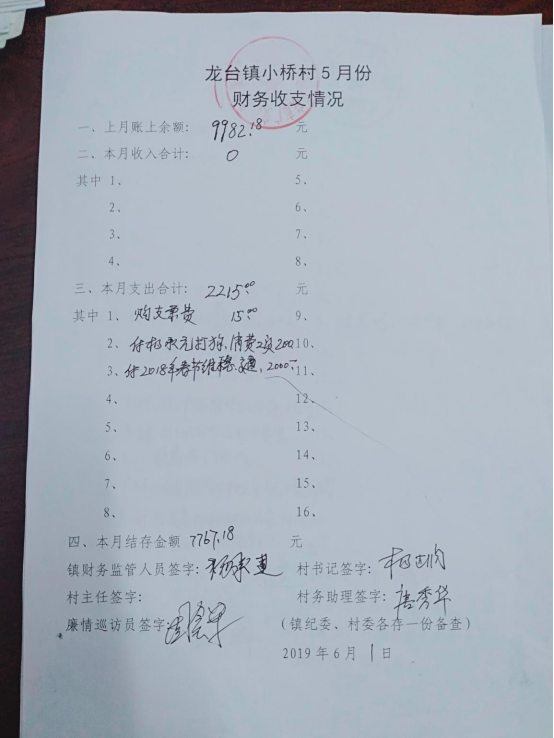 龙台镇小桥村5月份
财务收支情况
一、上月账上余额: 9982.18 元
二、本月收入合计: 0 元
其中 1、 5、
2、 6、
3、 7、
4、 8、
三、本月支出合计: 2215.00 元
其中 1、购支票费 15.00 9、
2、付杨永元打狗、消费工资200 10、
3、付2018年春节维稳、交通、2000.- 11、
4、 12、
5、 13、
6、 14、
7、 15、
8、 16、
四、本月结存金额 7767.18 元
镇财务监管人员签字: 村书记签字:
村主任签字: 村务助理签字: 唐秀华
廉情巡访员签字:
(镇纪委、村委各存一份备查)
2019年6月1日